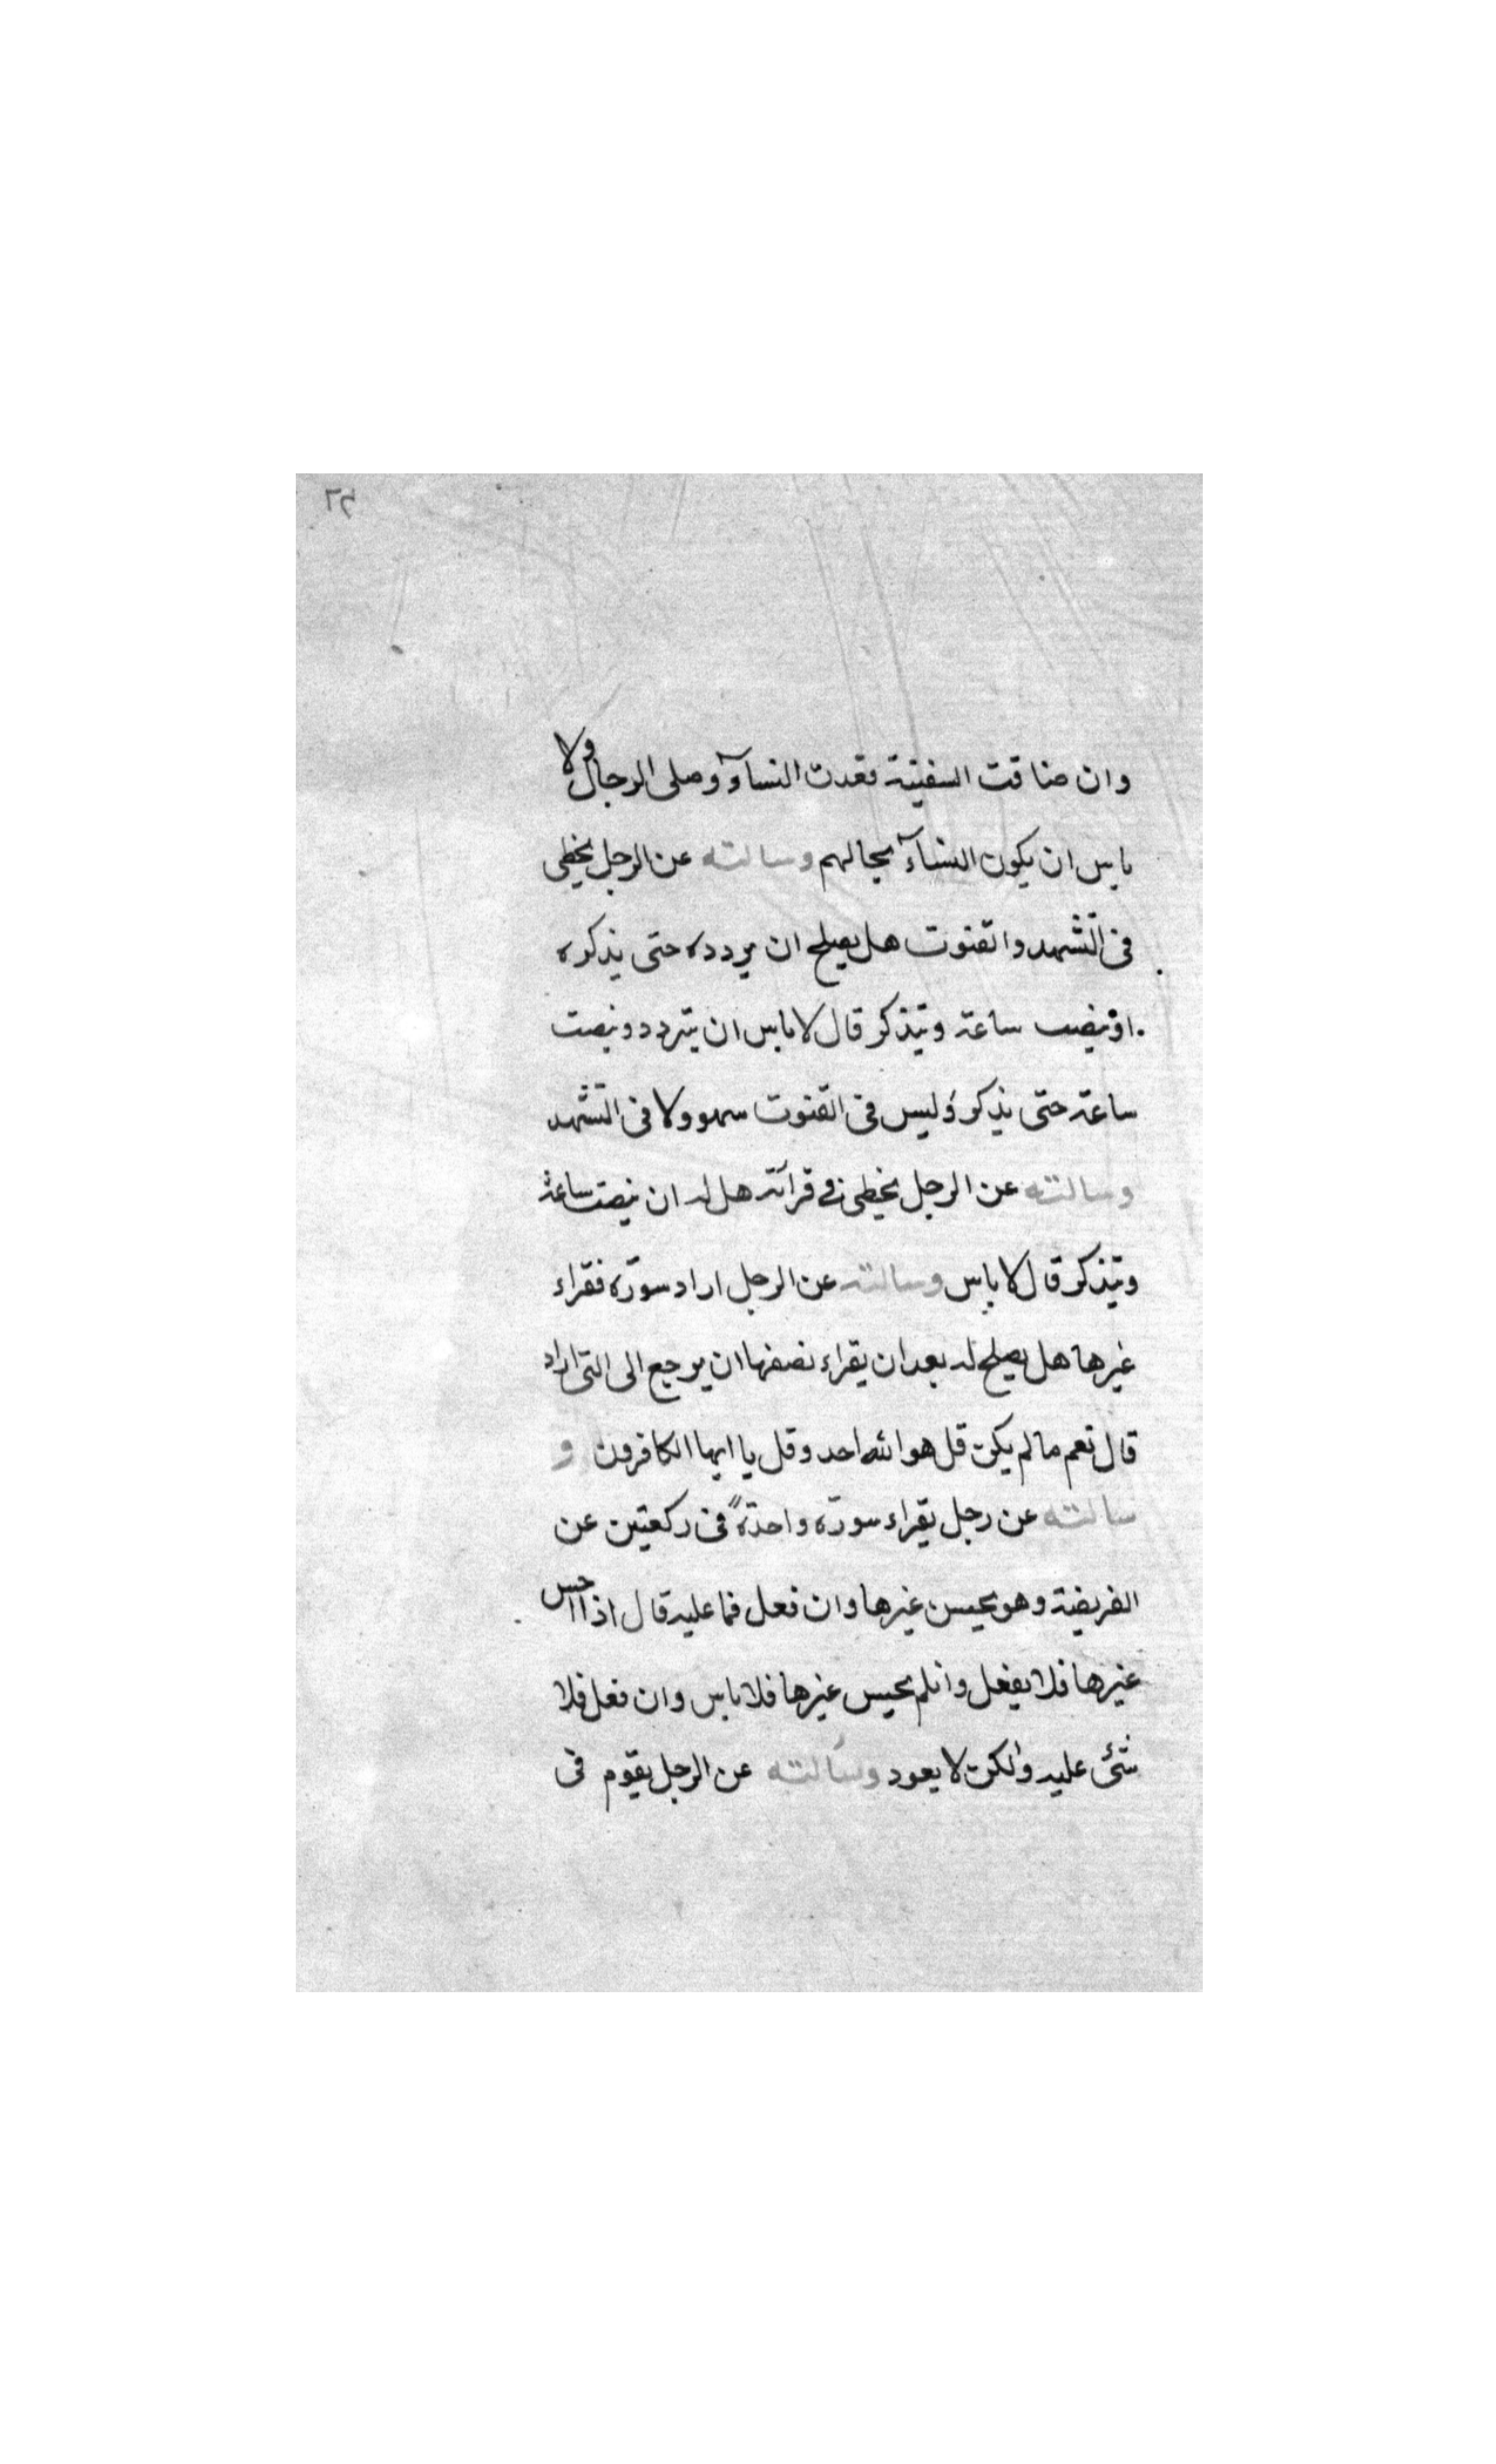 وان ضاقت السفينة قعدت النسآء وصلى الرجال ولا
باس ان يكون النسآء بحيالهم وسالته عن الرجل يخطى
فى التشهد والقنوت هل يصلح ان يردده حتى يذكره
او ينصت ساعة ويتذكر قال لا باس ان يتردد وينصت
ساعة حتى يذكر وليس فى القنوت سهو ولا فى التشهد
وسالته عن الرجل يخطى فى قرآته هل له ان ينصت ساعة
ويتذكر قال لا باس وسالته عن الرجل اراد سورة فقراء
غيرها هل يصلح له بعد ان يقراء نصفها ان يرجع الى التى اراد
قال نعم ما لم يكن قل هو الله احد وقل يا ايها الكافرون و
سالته عن رجل يقراء سورة واحدةً فى ركعتين عن
الفريضة وهو يحسن غيرها وان فعل فما عليه قال اذا احسن
غيرها فلا يفعل وانلم يحسن غيرها فلا باس وان فعل فلا
شئ عليه ولكن لا يعود وسالته عن الرجل يقوم فى